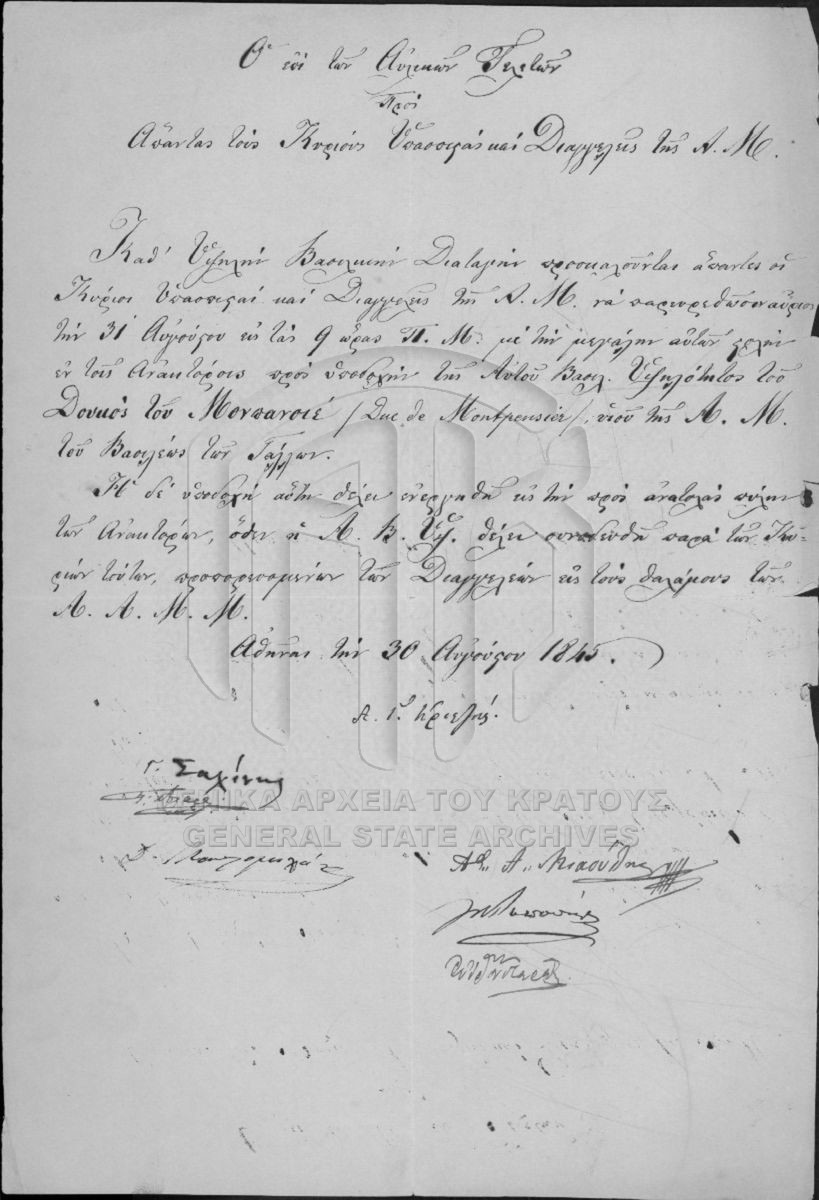 Ὁ ἐπὶ τῶν Αὐλικῶν Τελετῶν
Πρὸς
Ἅπαντας τοὺς Κυρίους Ὑπασπιστὰς καὶ Διαγγελεῖς τῆς Α. Μ.
Καθ' Ὑψηλὴν Βασιλικὴν Διαταγὴν προσκαλοῦνται ἅπαντες οἱ
Κύριοι Ὑπασπισταὶ καὶ Διαγγελεῖς τῆς Α. Μ. νὰ παρευρεθῶσιν αὔριον
τὴν 31 Αὐγούστου εἰς τὰς 9 ὥρας Π. Μ. μὲ τὴν μεγάλην αὐτῶν στολὴν
ἐν τοῖς Ἀνακτόροις πρὸς ὑποδοχὴν τῆς Αὐτοῦ Βασιλ. Ὑψηλότητος τοῦ
Δουκὸς τοῦ Μονπανσιέ /Duc de Montpensier/, υἱοῦ τῆς Α. Μ.
τοῦ Βασιλέως τῶν Γάλλων.
Ἡ δὲ ὑποδοχὴ αὕτη θέλει ἐνεργηθῆ εἰς τὴν πρὸς ἀνατολὰς πύλην
τῶν Ἀνακτόρων, ὅθεν ἡ Α. Β. Ὑψ. θέλει συνοδευθῆ παρὰ τῶν Κυ-
ρίων τούτων, προπορευομένων τῶν Διαγγελέων εἰς τοὺς θαλάμους τῶν
Α. Α. Μ. Μ.
Ἀθῆναι τὴν 30 Αὐγούστου 1845.
Α. Γ. Κριεζῆς.
Γ. Σαχίνης
Δ. Μαυρομιχάλης
Α. Μιαούλης
ΓΕΝΙΚΑ ΑΡΧΕΙΑ ΤΟΥ ΚΡΑΤΟΥΣ
GENERAL STATE ARCHIVES